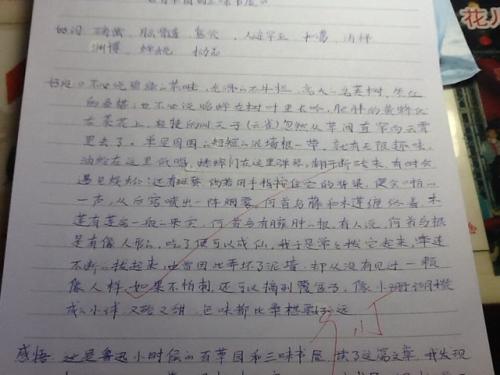 《百草园到三味书屋》
好词
人迹罕至
渊博
好句：不必说碧绿的菜畦，光滑的石井栏，高大的皂荚树，紫红
的桑椹；也不必说鸣蝉在树叶里长吟，肥胖的黄蜂伏
在菜花上，轻捷的叫天子（云雀）忽然从草间直窜向云霄
里去了。单是周围的短短的泥墙根一带，就有无限趣味。
油蛉在这里低唱，蟋蟀们在这里弹琴，翻开断砖来，有时会
遇见蜈蚣；还有斑蝥，倘若用手指按住它的脊梁，便会啪的
一声，从后窍喷出一阵烟雾。何首乌藤和木莲藤缠络着，木
莲有莲房一般的果实，何首乌有臃肿的根，有人说，何首乌根
是有像人形的，吃了便可以成仙，我于是常常拔它起来，牵连
不断的拔起来，也曾因此弄坏了泥墙，却从没有见过一颗
像人样，如果不怕刺，还可以摘到覆盆子，像小珊瑚攒
成的小球，又酸又甜，色味都比桑椹要好远
感悟 这是鲁迅小时候的百草园和三味书屋，读了这篇文章，我发现